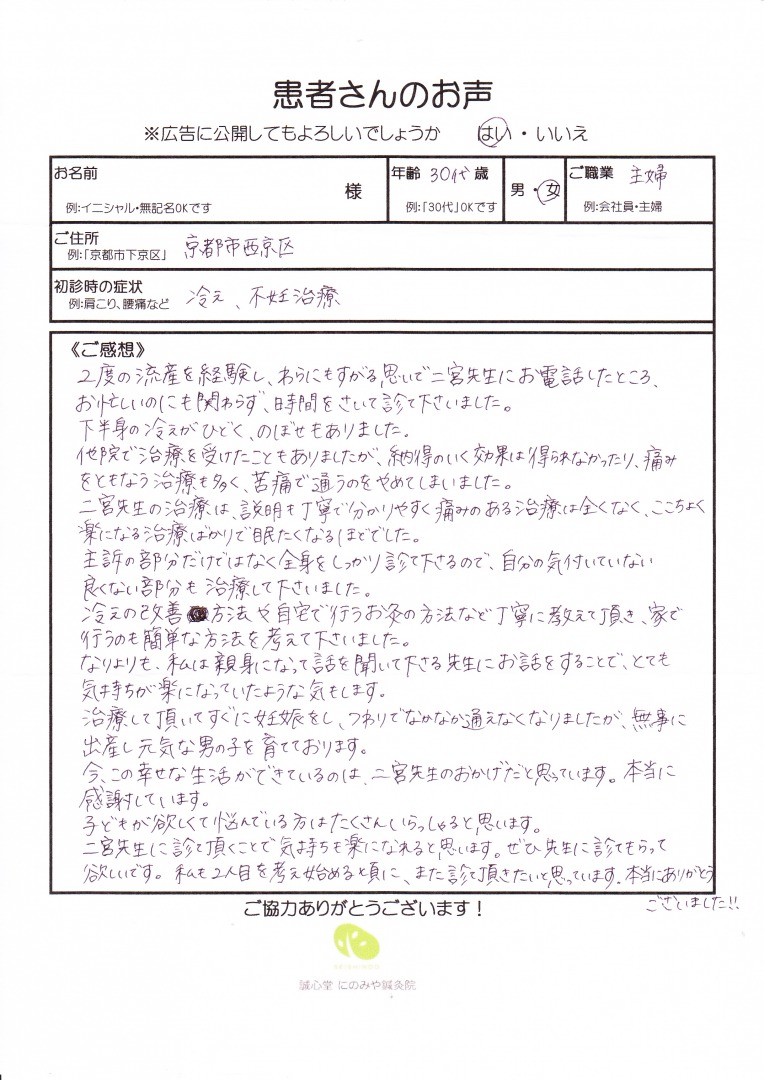 患者さんのお声
※広告に公開してもよろしいでしょうか　はい・いいえ
お名前　様　年齢 30代 歳　男・女　ご職業 主婦
例:イニシャル・無記名OKです　例:「30代」OKです　例:会社員・主婦
ご住所
例:「京都市下京区」　京都市西京区
初診時の症状
例:肩こり、腰痛など　冷え、不妊治療
《ご感想》
2度の流産を経験し、わらにもすがる思いで二宮先生にお電話したところ、
お忙しいのにも関わらず、時間をさいて診て下さいました。
下半身の冷えがひどく、のぼせもありました。
他院で治療を受けたこともありましたが、納得のいく効果は得られなかったり、痛み
をともなう治療も多く、苦痛で通うのをやめてしまいました。
二宮先生の治療は、説明も丁寧で分かりやすく痛みのある治療は全くなく、ここちよく
楽になる治療ばかりで眠たくなるほどでした。
主訴の部分だけではなく全身をしっかり診て下さるので、自分の気付いていない
良くない部分も治療して下さいました。
冷えの改善方法や自宅で行うお灸の方法など丁寧に教えて頂き、家で
行うのも簡単な方法を考えて下さいました。
なりよりも、私は親身になって話を聞いて下さる先生にお話をすることで、とても
気持ちが楽になっていたような気もします。
治療して頂いてすぐに妊娠をし、つわりでなかなか通えなくなりましたが、無事に
出産し元気な男の子を育てております。
今、この幸せな生活ができているのは、二宮先生のおかげだと思っています。本当に
感謝しています。
子どもが欲しくて悩んでいる方はたくさんいらっしゃると思います。
二宮先生に診て頂くことで気持ちも楽になれると思います。ぜひ先生に診てもらって
欲しいです。私も2人目を考え始めると頃に、また診て頂きたいと思っています。本当にありがとう
ございました!!
ご協力ありがとうございます！
誠心堂 にのみや鍼灸院